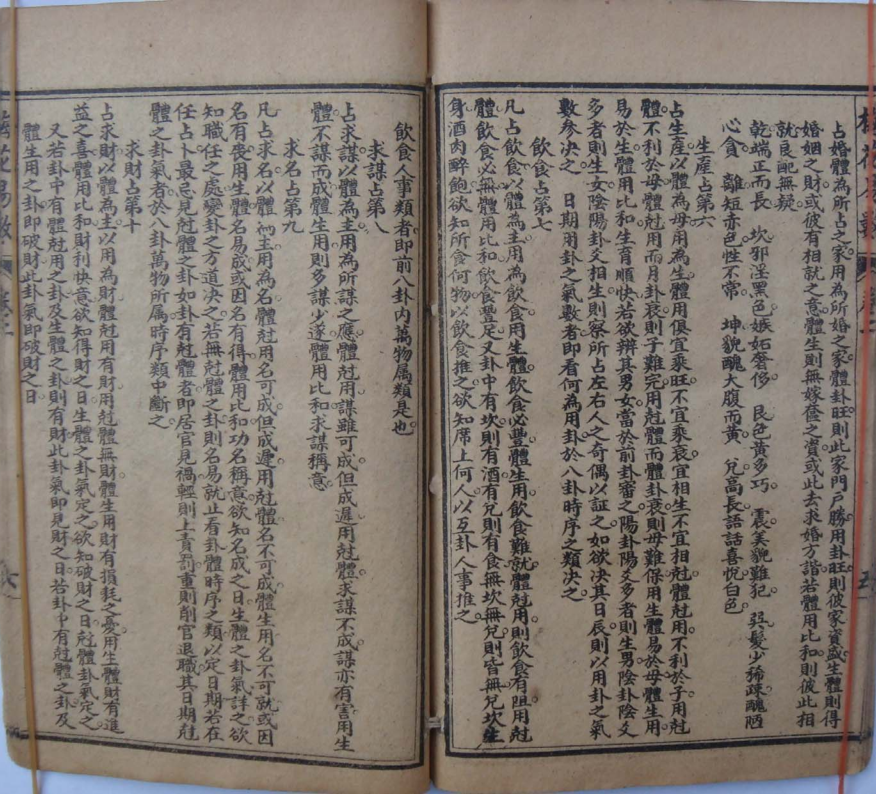 占婚體為所占之家用為所婚之家體卦旺則此家門戶勝用卦旺則彼家資盛生體則得
婚姻之財或彼有相就之意體生則無嫁奩之資或此去求婚方諧若體用比和則彼此相
就良配無疑
乾端正而長 坎邪淫黑色嫉妬奢侈 艮色黃多巧 震美貌難犯 巽髮少稀疎醜陋
心貪 離短赤色性不常 坤貌醜大腹而黃 兌高長語話喜悅白色
生產占第六
占生產以體為母用為生體用俱宜乘旺不宜乘衰宜相生不宜相尅體尅用不利於子用尅
體不利於母體尅用而用卦衰則子難完用尅體而體卦衰則母難保用生體易於母體生用
易於生體用比和生育順快若欲辨其男女當於前卦審之陽卦陽爻多者則生男陰卦陰爻
多者則生女陰陽卦爻相生則察所占左右人之奇偶以証之如欲決其日辰則以用卦之氣
數參決之 日期用卦之氣數者即看何為用卦於八卦時序之類決之
飲食占第七
凡占飲食以體為主用為飲食用生體飲食必豐體生用飲食難就體尅用則飲食有阻用尅
體飲食必無體用比和飲食豐足又卦中有坎則有酒有兌則有食無坎無兌則皆無兌坎生
身酒肉醉飽欲知所食何物以飲食推之欲知席上何人以互卦人事推之
飲食人事類者即前八卦內萬物属類是也
求謀占第八
占求謀以體為主用為所謀之應體尅用謀雖可成但成遲用尅體求謀不成謀亦有害用生
體不謀而成體生用則多謀少遂體用比和求謀稱意
求名占第九
凡占求名以體為主用為名體尅用名可成但成遲用尅體名不可成體生用名不可就或因
名有喪用生體名易成或因名有得體用比和功名稱意欲知名成之日生體之卦氣詳之欲
知職任之處變卦之方道決之若無尅體之卦則名易就止看卦體時序之類以定日期若在
任占卜最忌見尅體之卦如卦有尅體者即居官見禍輕則上責罰重則削官退職其日期尅
體之卦氣者於八卦萬物所属時序類中斷之
求財占第十
占求財以體為主以用為財體尅用有財用尅體無財體生用財有損耗之憂用生體財有進
益之喜體用比和財利快意欲知得財之日生體之卦氣定之欲知破財之日尅體卦氣定之
又若卦中有體尅用之卦及生體之卦則有財此卦氣即見財之日若卦中有尅體之卦及
體生用之卦即破財此卦氣即破財之日